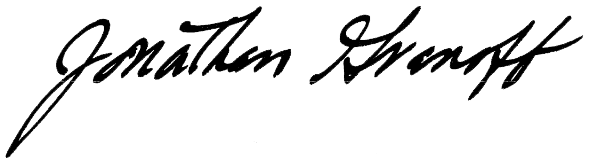 Jonathan Granoff